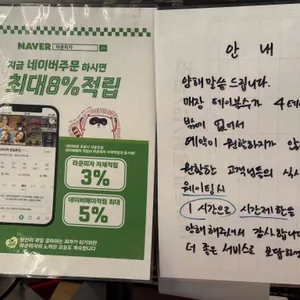 NAVER 라운피자
지금 네이버주문 하시면
최대8%적립
라운피자 자체적립
3%
네이버페이적립 최대
5%
안 내
양해말씀 드립니다.
매장 테이블수가 4테
밖에 없어서
예약이 원활하지가 않
원활한 고객님들의 식사
웨이팅시
1시간으로 시간제한을
양해해주셔서 감사합니다
더 좋은 서비스로 보답하겠